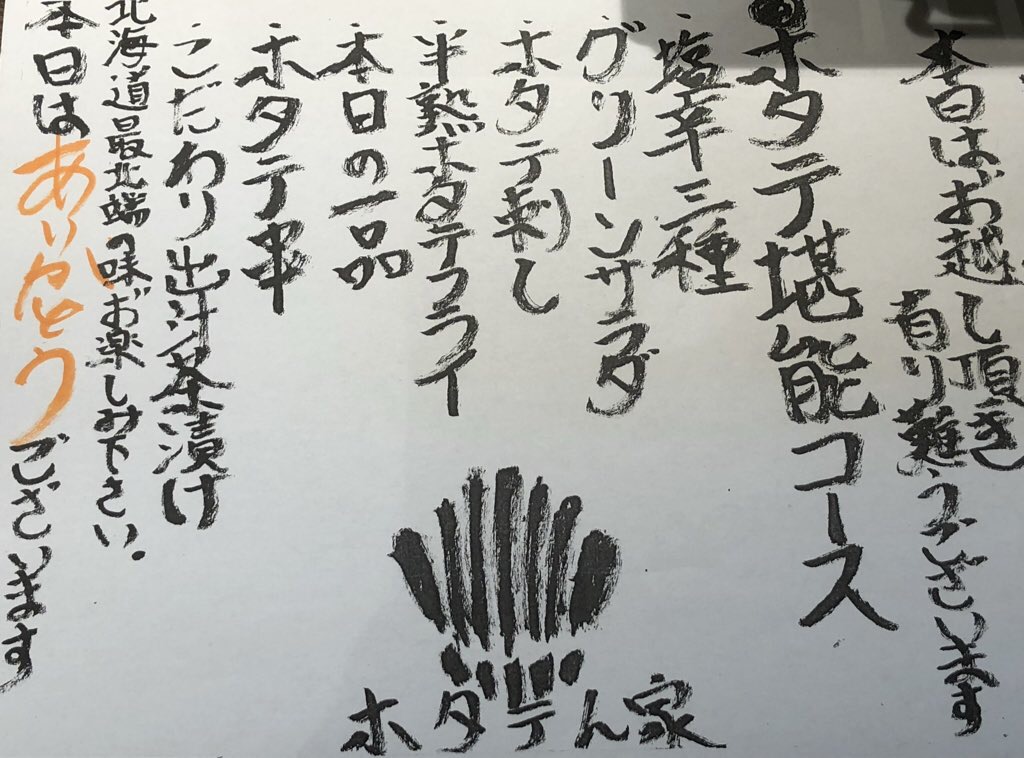 本日はお越し頂き
有り難うございます
◉ホタテ堪能コース
塩辛三種
グリーンサラダ
ホタテ刺し
半熟ホタテフライ
本日の一品
ホタテ串
こだわり出汁茶漬け
北海道最北端の味お楽しみ下さい。
本日はありがとうございます
ホタテん家